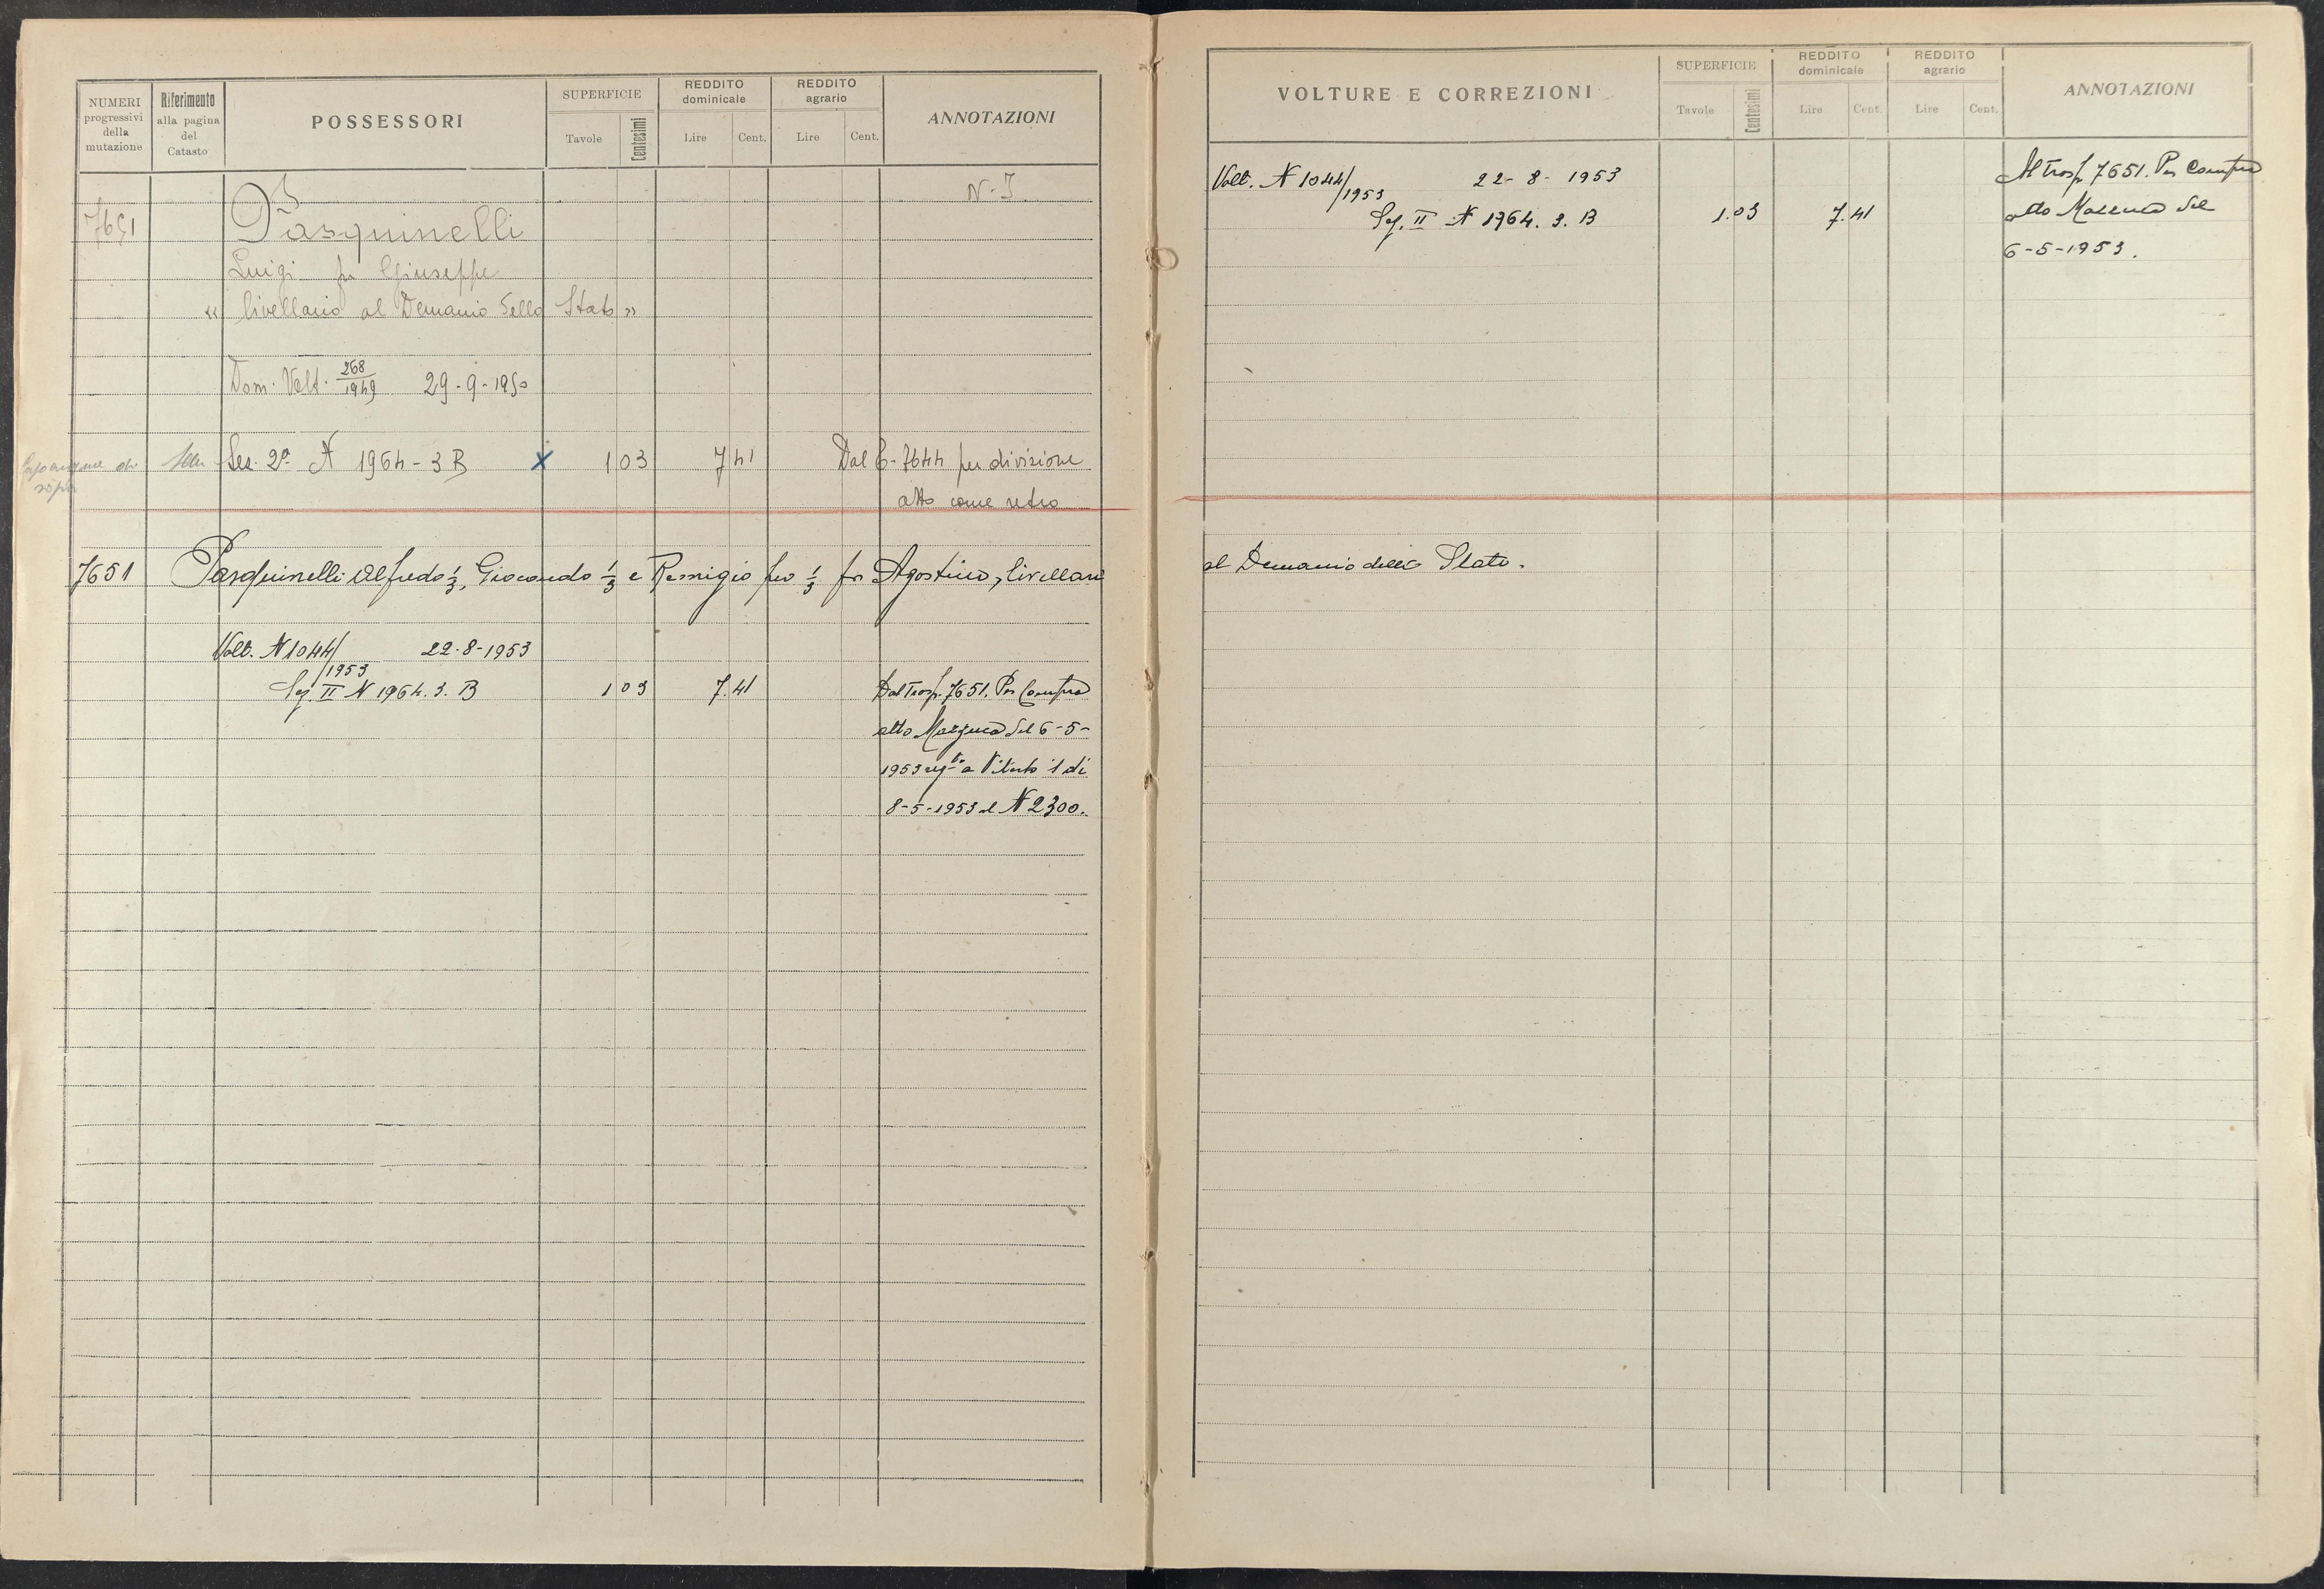 NUMERI progressivi della mutazione
Riferimento alla pagina del Catasto
POSSESSORI
SUPERFICIE
Tavole Centesimi
REDDITO dominicale
Lire Cent.
REDDITO agrario
Lire Cent.
ANNOTAZIONI
N. I
7651 Pasquinelli
Luigi fu Giuseppe
« livellario al Demanio dello Stato »
Dom. Volt. 268/1949 29-9-1950
Sez. 2ª N 1964-3 B x 1 03 7 41 Dal C- 7644 per divisione
atto come retro
sopra
7651 Pasquinelli Alfredo 1/3, Giocondo 1/3 e Remigio per 1/3 fu Agostino, livellari
Volt. N 1044/1953 22-8-1953
Sez. II N 1964. 3. B 1 03 7.41 Dal Trasp. 7651. Per Compra
atto Mazzuca del 6-5-
1953 regto a Viterbo il dì
8-5-1953 al N 2300.
VOLTURE E CORREZIONI
SUPERFICIE
Tavole Centesimi
REDDITO dominicale
Lire Cent.
REDDITO agrario
Lire Cent.
ANNOTAZIONI
Volt. N 1044/1953 22-8-1953 Al Trasp. 7651. Per Compra
Sez. II N 1964. 3. B 1.03 7.41 atto Mazzuca del
6-5-1953.
al Demanio dello Stato.